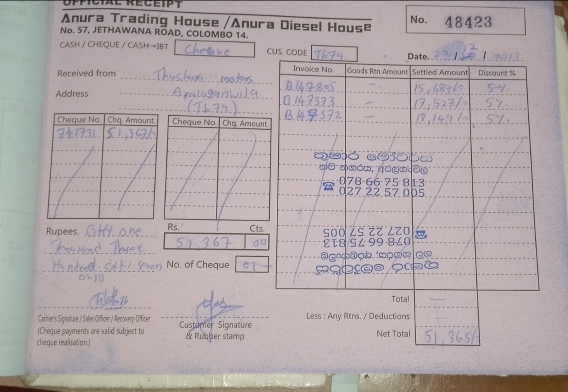 OFFICIAL RECEIPT
Anura Trading House /Anura Diesel House
No. 57, JETHAWANA ROAD, COLOMBO 14.
No. 48423
CASH / CHEQUE / CASH→IBT Cheque
CUS. CODE Th79
Date.
Received from Thushara motors
Address
(Th79)
Invoice No. Goods Rtn Amount Settled Amount Discount %
B147805 — 15,689/= 5%
B147373 — 17,527/= 5%
B147572 — 18,149/= 5%
Cheque No. Chq. Amount Cheque No. Chq. Amount
741731 51,367/=
☎ 078 66 75 813
027 22 57 005
☎ 027 22 57 005
078 66 75 813
Rupees. Fifty one
Thousand Three
Hundred sixty seven
only
Rs. Cts.
51,367 00
No. of Cheque 01
Total —
Less : Any Rtns. / Deductions —
Net Total 51,365/=
Cashier's Signature / Sales Officer / Recovery Officer
(Cheque payments are valid subject to
cheque realisation.)
Customer Signature
& Rubber stamp